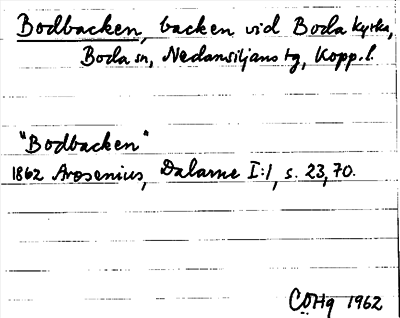 Bodbacken, backen vid Boda kyrka,
Boda sn, Nedansiljans tg, Kopp. l.
"Bodbacken"
1862 Arosenius, Dalarne I:1, s. 23, 70.
COHq 1962